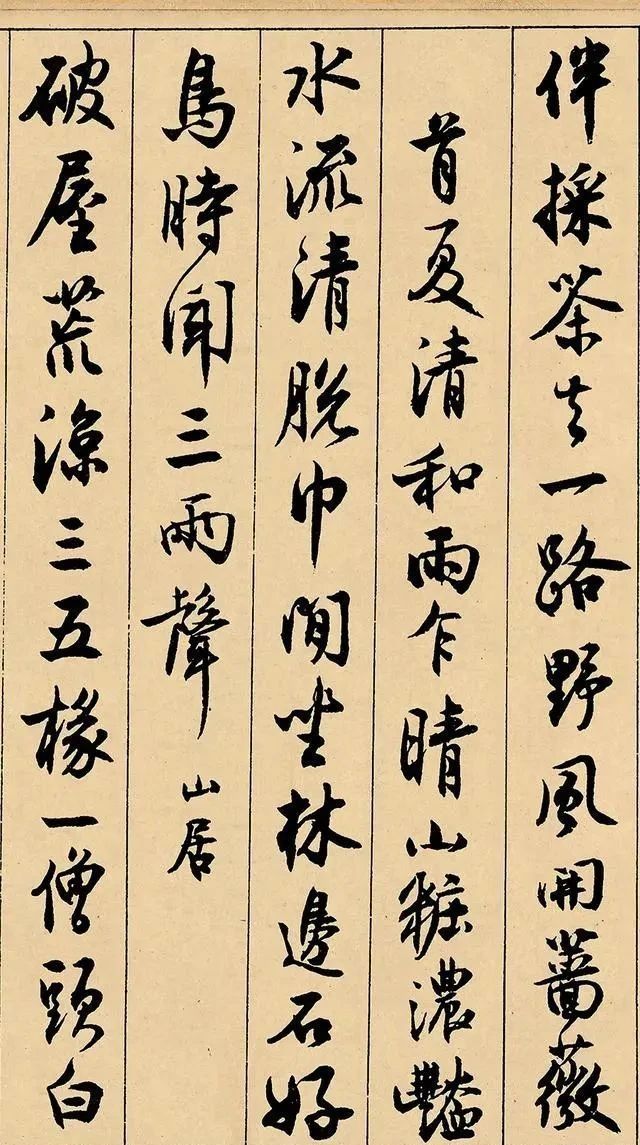 伴採茶去一路野風開薔薇
首夏清和雨乍晴山粧濃豔
水流清脫巾閒坐林邊石好
鳥時聞三兩聲
山居
破屋荒涼三五椽一僧頭白